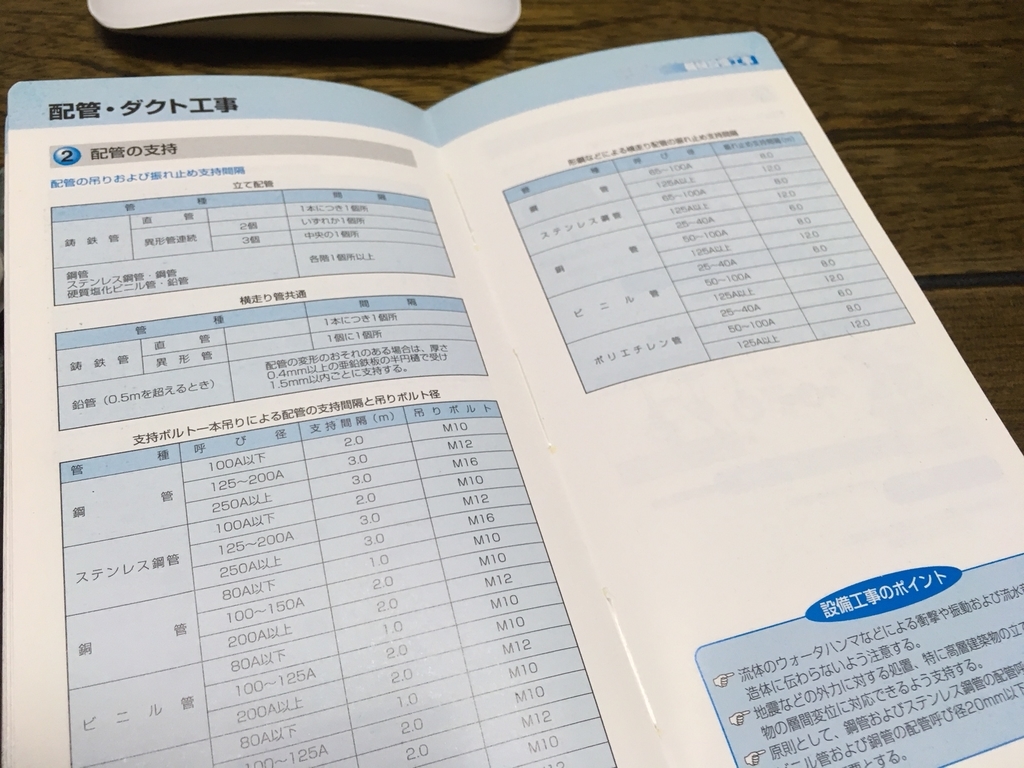 配管・ダクト工事
2 配管の支持
配管の吊りおよび振れ止め支持間隔
立て配管
管 種 間 隔
鋳鉄管 直管 1本につき1個所
異形管連続 2個 いずれか1個所
3個 中央の1個所
鋼管
ステンレス鋼管・銅管
硬質塩化ビニル管・鉛管
各階1個所以上
横走り管共通
管 種 間 隔
鋳鉄管 直管 1本につき1個所
異形管 1個に1個所
鉛管（0.5mを超えるとき）
配管の変形のおそれのある場合は、厚さ
0.4mm以上の亜鉛鉄板の半円樋で受け
1.5mm以内ごとに支持する。
支持ボルト一本吊りによる配管の支持間隔と吊りボルト径
管種 呼び径 支持間隔（m） 吊りボルト
鋼管 100A以下 2.0 M10
125〜200A 3.0 M12
250A以上 3.0 M16
ステンレス鋼管 100A以下 2.0 M10
125〜200A 3.0 M12
250A以上 3.0 M16
銅管 80A以下 1.0 M10
100〜150A 2.0 M12
200A以上 2.0 M10
ビニル管 80A以下 1.0 M10
100〜125A 2.0 M10
200A以上 1.0 M12
80A以下 2.0 M10
100〜125A 2.0 M12
M10
形鋼などによる横走り配管の振れ止め支持間隔
管種 呼び径 振れ止め支持間隔(m)
鋼管 65〜100A 8.0
125A以上 12.0
ステンレス鋼管 65〜100A 8.0
125A以上 12.0
銅管 25〜40A 6.0
50〜100A 8.0
125A以上 12.0
ビニル管 25〜40A 6.0
50〜100A 8.0
125A以上 12.0
ポリエチレン管 25〜40A 6.0
50〜100A 8.0
125A以上 12.0
設備工事のポイント
流体のウォータハンマなどによる衝撃や振動および流水
造体に伝わらないよう注意する。
地震などの外力に対する処置、特に高層建築物の立て
物の層間変位に対応できるよう支持する。
原則として、鋼管およびステンレス鋼管の配管呼
ニル管および銅管の配管呼び径20mm以下
要とする。